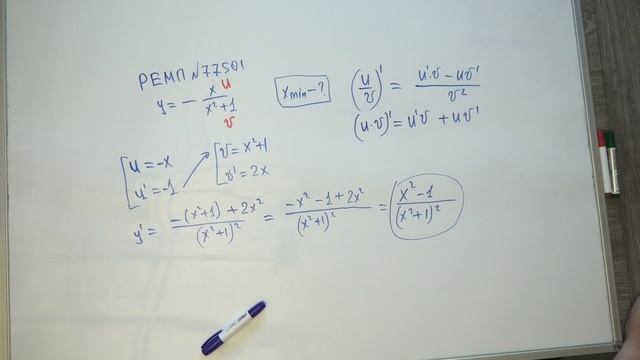 РЕМП №77501
y = - x/(x²+1)
u
v
xmin - ?
(u/v)' = (u'v - uv')/v²
(u·v)' = u'v + uv'
u = -x
u' = -1
v = x²+1
v' = 2x
y' = (-(x²+1) + 2x²)/(x²+1)² = (-x² - 1 + 2x²)/(x²+1)² = (x² - 1)/(x²+1)²